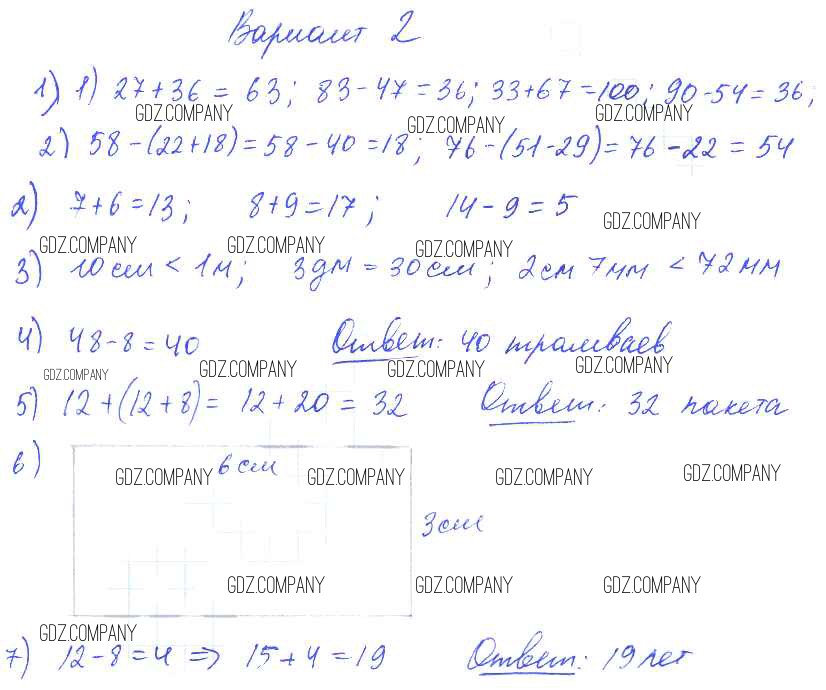 Вариант 2
1) 1) 27+36 = 63; 83-47=36; 33+67=100; 90-54=36;
GDZ.COMPANY GDZ.COMPANY GDZ.COMPANY
2) 58-(22+18)=58-40=18; 76-(51-29)=76-22=54
2) 7+6=13; 8+9=17; 14-9=5
GDZ.COMPANY
GDZ.COMPANY GDZ.COMPANY GDZ.COMPANY
3) 10 см < 1 м; 3 дм = 30 см; 2 см 7 мм < 72 мм
4) 48-8=40 Ответ: 40 трамваев
GDZ.COMPANY GDZ.COMPANY GDZ.COMPANY GDZ.COMPANY
5) 12+(12+8)= 12+20=32 Ответ: 32 пакета
6)
6 см
GDZ.COMPANY GDZ.COMPANY GDZ.COMPANY GDZ.COMPANY
3 см
GDZ.COMPANY GDZ.COMPANY GDZ.COMPANY
GDZ.COMPANY
7) 12-8=4 => 15+4=19 Ответ: 19 лет